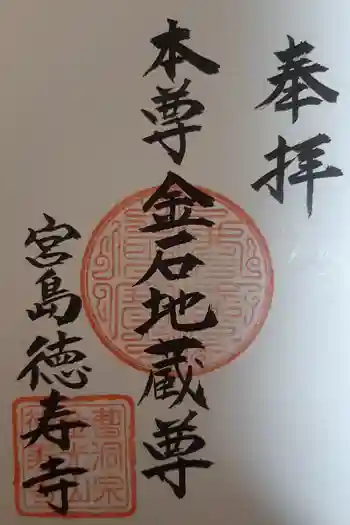 奉拝
本尊金石地蔵尊
宮島徳寿寺